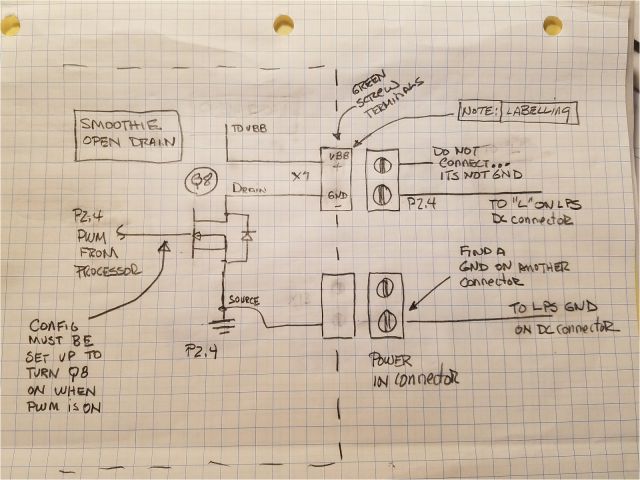 SMOOTHIE
OPEN DRAIN
TO VBB
GREEN
SCREW
TERMINALS
NOTE: LABELLING
VBB
+
GND
-
X7
Q8
DRAIN
DO NOT
CONNECT...
ITS NOT GND
P2.4
TO "L" ON LPS
DC connector
P2.4
PWM
FROM
PROCESSOR
FIND A
GND ON ANOTHER
connector
SOURCE
TO LPS GND
ON DC connector
P2.4
POWER
IN connector
CONFIG
MUST BE
SET UP TO
TURN Q8
ON WHEN
PWM is ON